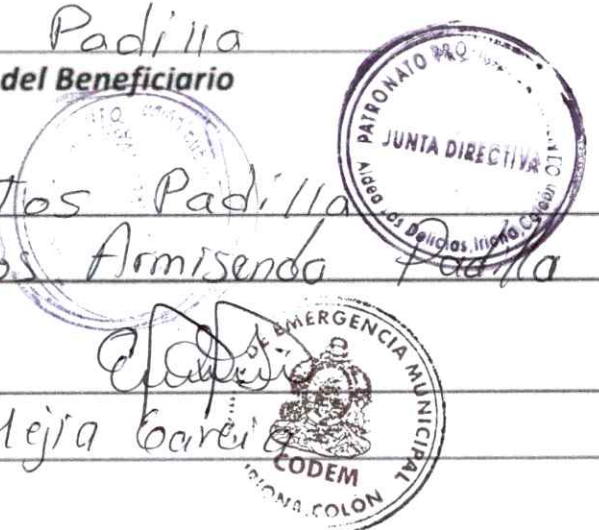 Padilla
del Beneficiario
PATRONATO PRO
JUNTA DIRECTIVA
Aldea Las Delicias, Iriona, Colón
tos Padilla
os Armisenda Padilla
DE EMERGENCIA MUNICIPAL
Mejia Garcia
CODEM
IRIONA, COLÓN